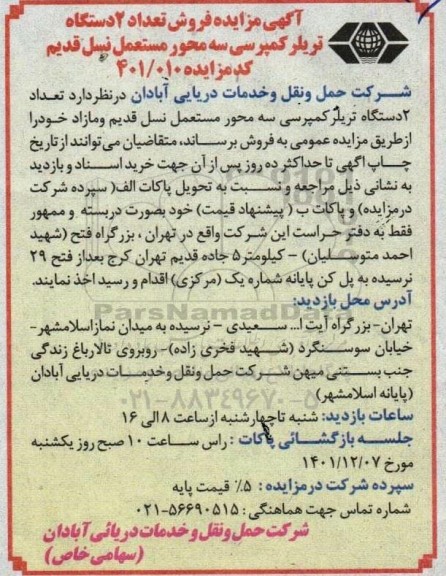 آگهی مزایده فروش تعداد ۲دستگاه
تریلر کمپرسی سه محور مستعمل نسل قدیم
کد مزایده ۴۰۱/۰۱۰
شــرکت حمل ونقل وخدمات دریایی آبادان درنظردارد تعداد
۲دستگاه تریلر کمپرسی سه محور مستعمل نسل قدیم ومازاد خودرا
ازطریق مزایده عمومی به فروش برساند، متقاضیان می توانند از تاریخ
چــاپ آگهی تا حداکثر ده روز پس از آن جهت خرید اسناد و بازدید
به نشانی ذیل مراجعه و نسبت به تحویل پاکات الف( سپرده شرکت
درمزایده) و پاکات ب ( پیشنهاد قیمت) خود بصورت دربسته و ممهور
فقط به دفتر حراست این شرکت واقع در تهران ، بزرگراه فتح (شهید
احمد متوسـلیان) - کیلومتر ۵ جاده قدیم تهران کرج بعداز فتح ۲۹
نرسیده به پل کن پایانه شماره یک (مرکزی) اقدام و رسید اخذ نمایند.
ParsNamadData
آدرس محل بازدید:
تهران- بزرگراه آیت ا... سـعیدی - نرسیده به میدان نماز اسلامشهر-
خیابان سوسـنگرد (شـهید فخری زاده)- روبروی تالار باغ زندگی
جنب بسـتنی میهن شـرکت حمل ونقل وخدمـات دریایی آبادان
(پایانه اسلامشهر)
۰۲۱-۸۸۳۴۹۶۷۰-۵
ساعات بازدید: شنبه تا چهارشنبه از ساعت ۸ الی ۱۶
جلسـه بازگشـائی پاکات : راس ساعـت ۱۰ صبح روز یکشنبه
مورخ ۱۴۰۱/۱۲/۰۷
سپرده شرکت درمزایده : ۵٪ قیمت پایه
شماره تماس جهت هماهنگی : ۵۶۶۹۰۵۱۵-۰۲۱
شرکت حمل و نقل و خدمات دریائی آبادان
(سهامی خاص)